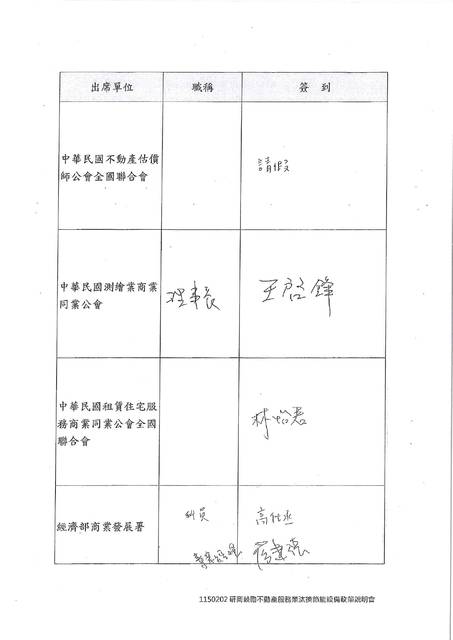 出席單位
職稱
簽到
中華民國不動產估價
師公會全國聯合會
請假
中華民國測繪業商業
同業公會
理事長
王啓鋒
中華民國租賃住宅服
務商業同業公會全國
聯合會
林怡君
經濟部商業發展署
科員
高仕丞
1150202 研商鼓勵不動產服務業汰換節能設備政策說明會